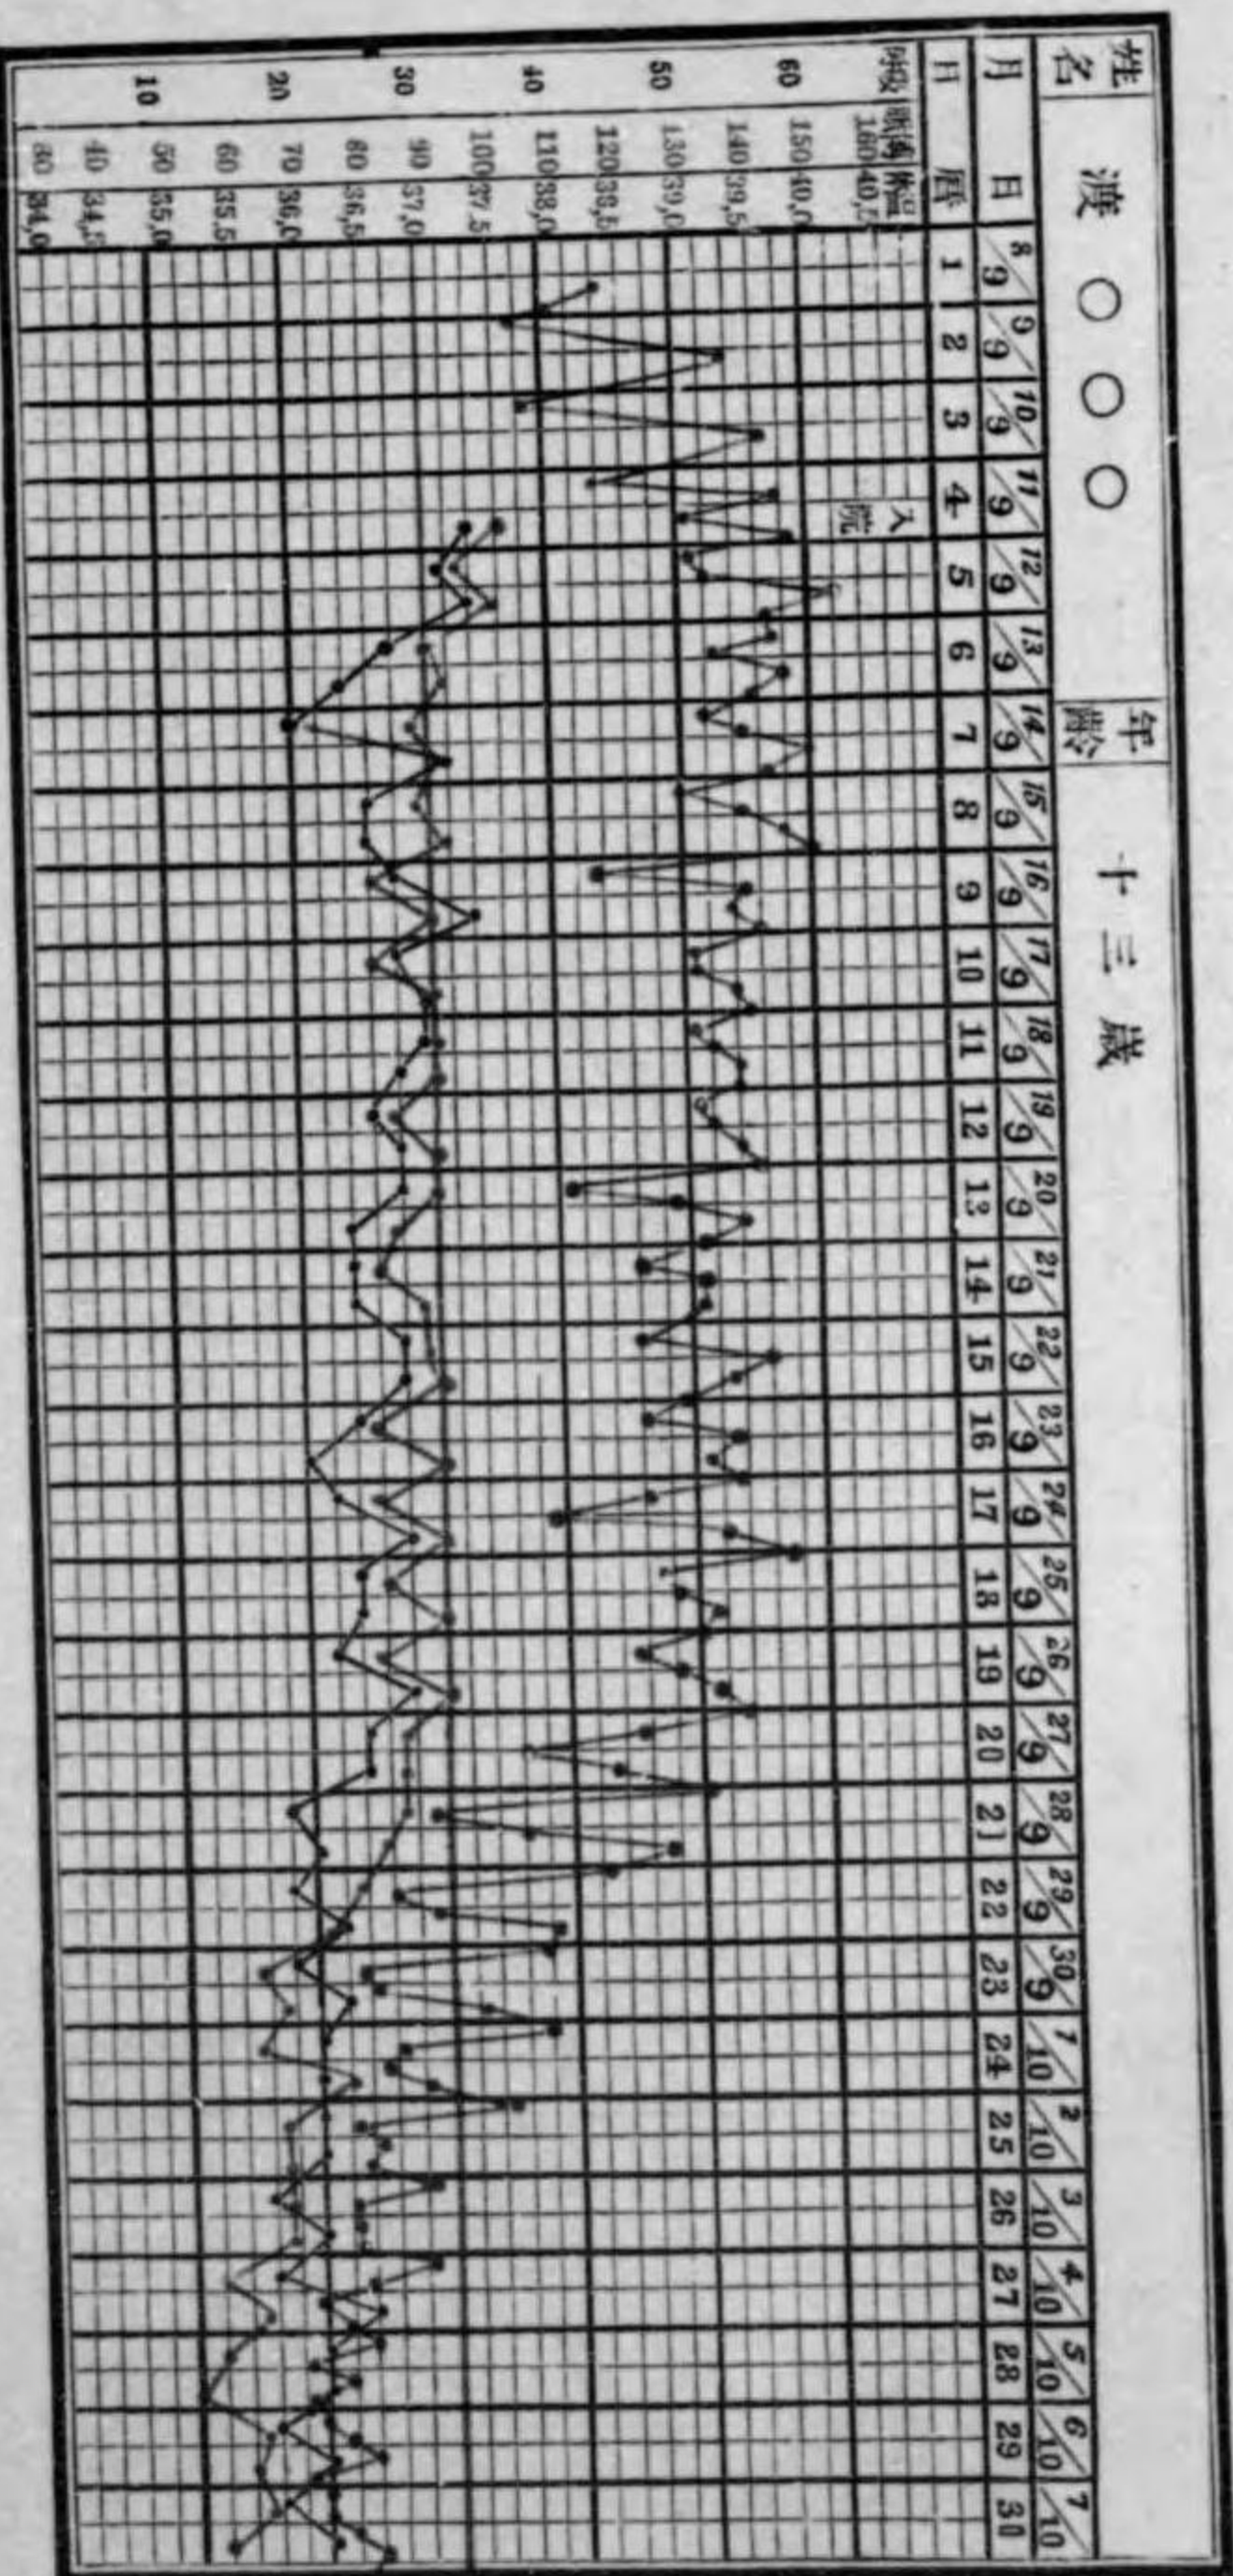 姓名 渡 ○ ○ ○ 年齡 十三歳
月日 8/9 9/9 10/9 11/9 12/9 13/9 14/9 15/9 16/9 17/9 18/9 19/9 20/9 21/9 22/9 23/9 24/9 25/9 26/9 27/9 28/9 29/9 30/9 1/10 2/10 3/10 4/10 5/10 6/10 7/10
日暦 1 2 3 4 5 6 7 8 9 10 11 12 13 14 15 16 17 18 19 20 21 22 23 24 25 26 27 28 29 30
呼吸 脈搏 体温
160 40,5
入院
60 150 40,0
140 39,5
50 130 39,0
120 38,5
40 110 38,0
100 37.5
30 90 37,0
80 36,5
20 70 36,0
60 35.5
10 50 35,0
40 34,5
30 34,0